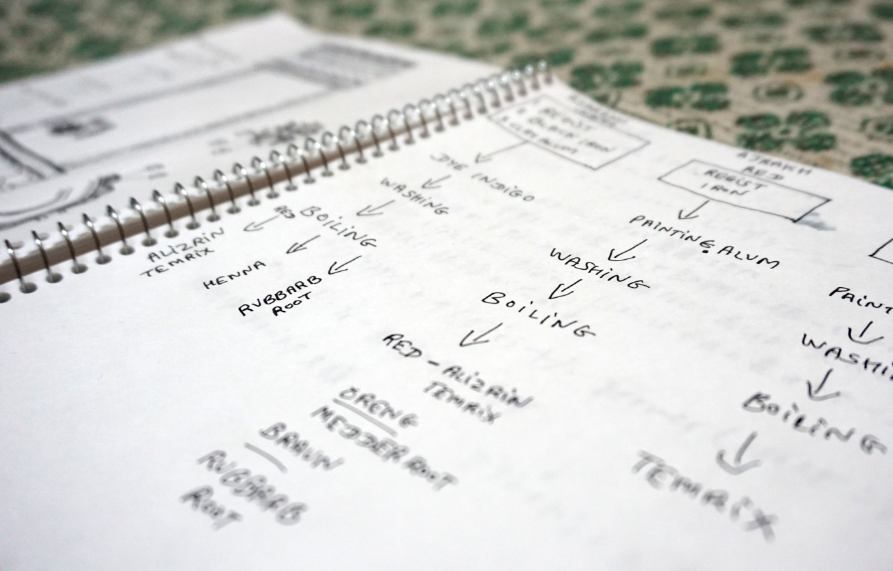 RESIST
BLACK IRON
DYE INDIGO
WASHING
BOILING
RED
ALIZRIN
TEMRIX
HENNA
RUBBARB
ROOT
AJRAKH
RED
RESIST
IRON
PAINTING ALUM
WASHING
BOILING
RED - ALIZRIN
TEMRIX
ORENG
MEDDER ROOT
BRAUN
RUBBARB
ROOT
PAINT
WASHI
BOILING
TEMRIX